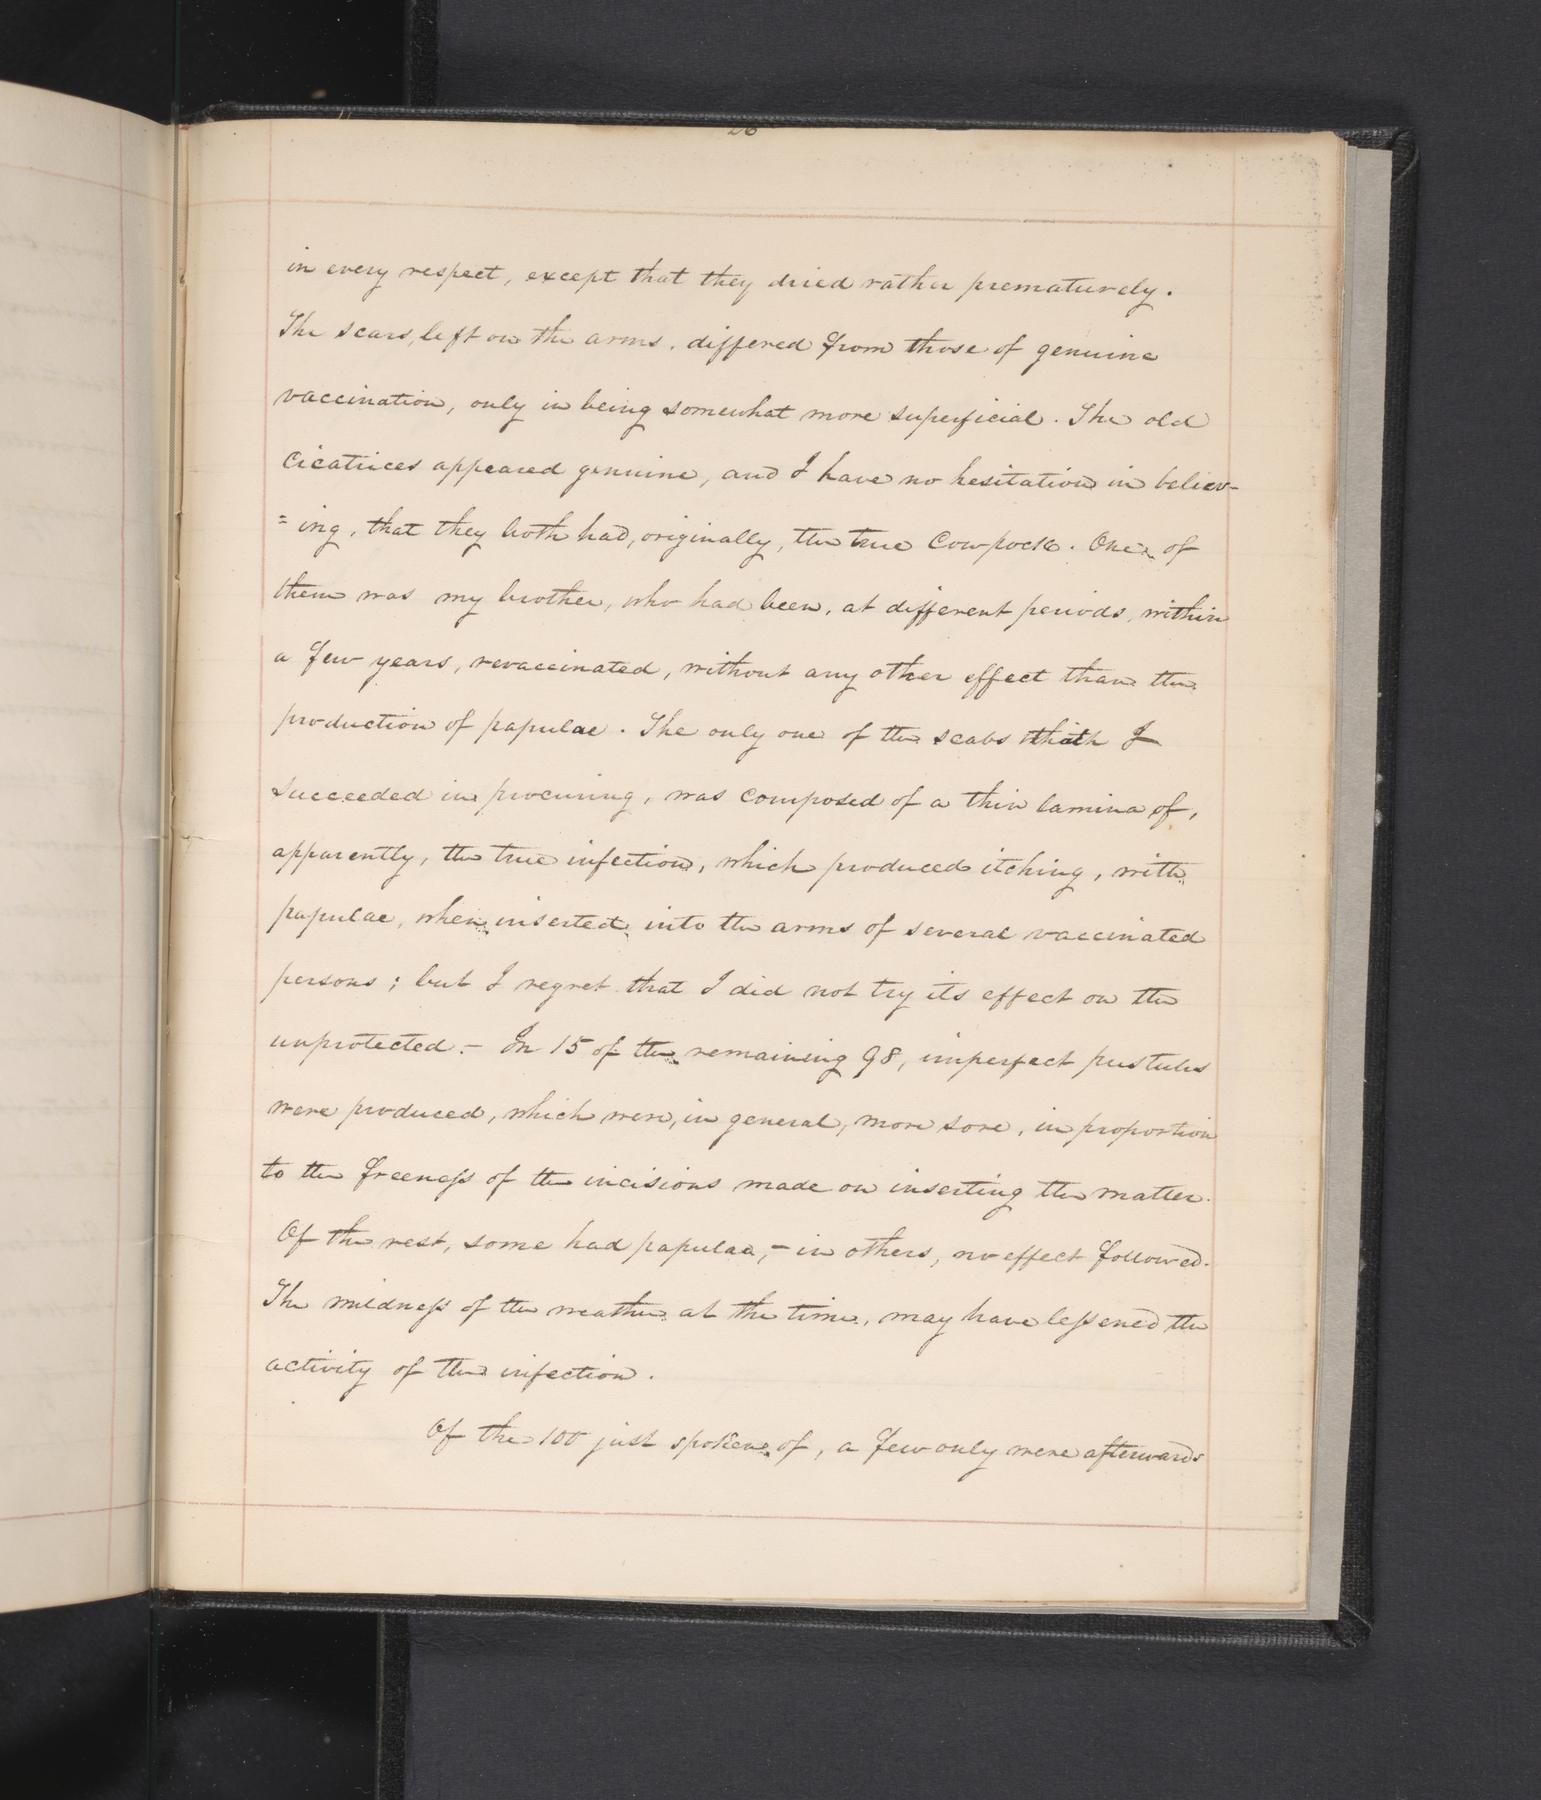 26
in every respect, except that they dried rather prematurely.
The scars, left on the arms, differed from those of genuine
vaccination, only in being somewhat more superficial. The old
cicatrices appeared genuine, and I have no hesitation in believ-
=ing, that they both had, originally, the true Cowpock. One of
them was my brother, who had been, at different periods, within
a few years, revaccinated, without any other effect than the
production of papulae. The only one of the scabs which I
succeeded in procuring, was composed of a thin lamina of,
apparently, the true infection, which produced itching, with
papulae, when inserted into the arms of several vaccinated
persons; but I regret that I did not try its effect on the
unprotected. - In 15 of the remaining 98, imperfect pustules
were produced, which were, in general, more sore, in proportion
to the freeneſs of the incisions made on inserting the matter.
Of the rest, some had papulae, - in others, no effect followed.
The mildneſs of the weather at the time, may have leſsened the
activity of the infection.
Of the 100 just spoken of, a few only were afterwards